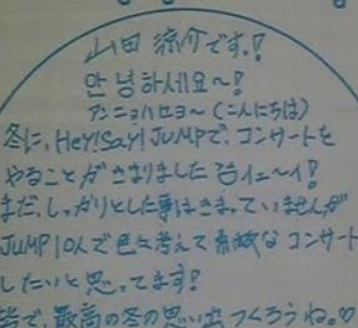 山田 涼介です!
안녕하세요~!
アンニョハセヨ~(こんにちは)
冬に、Hey!Say!JUMPで、コンサートを
やることがきまりました イェ~イ!
まだ、しっかりとした事はきまっていませんが
JUMP10人で色々考えて素敵なコンサート
したいと思ってます!
皆で、最高の冬の思い出つくろうね。♡